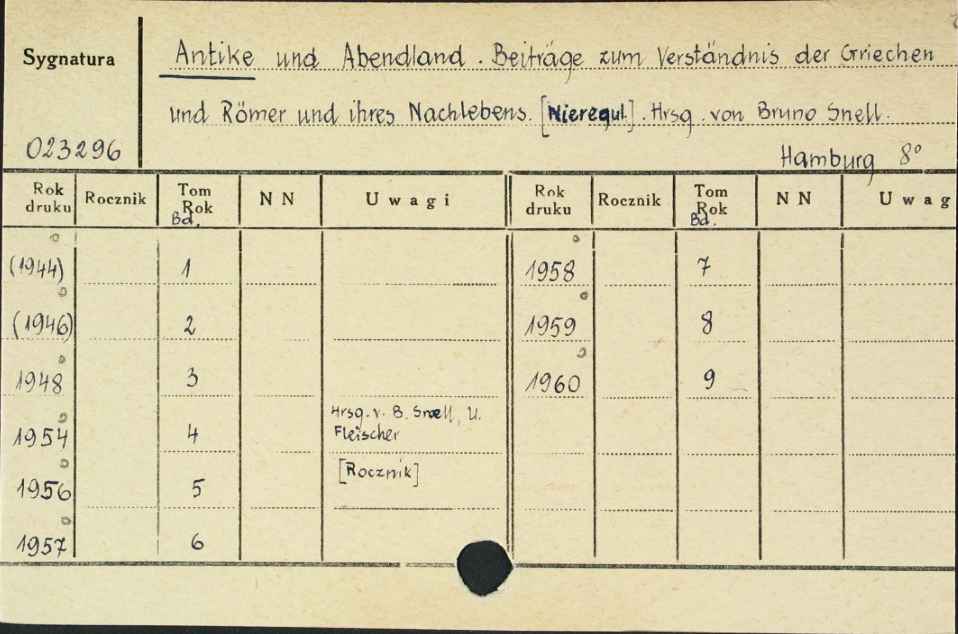 Sygnatura
Antike und Abendland. Beiträge zum Verständnis der Griechen
und Römer und ihres Nachlebens. [Nieregul.]. Hrsg. von Bruno Snell.
023296
Hamburg 8°
Rok druku Rocznik Tom Rok Bd. N N Uwagi Rok druku Rocznik Tom Rok Bd. N N Uwag
(1944) 1 1958 7
(1946) 2 1959 8
1948 3 1960 9
Hrsg. v. B. Snell, U.
1954 4 Fleischer
[Rocznik]
1956 5
1957 6